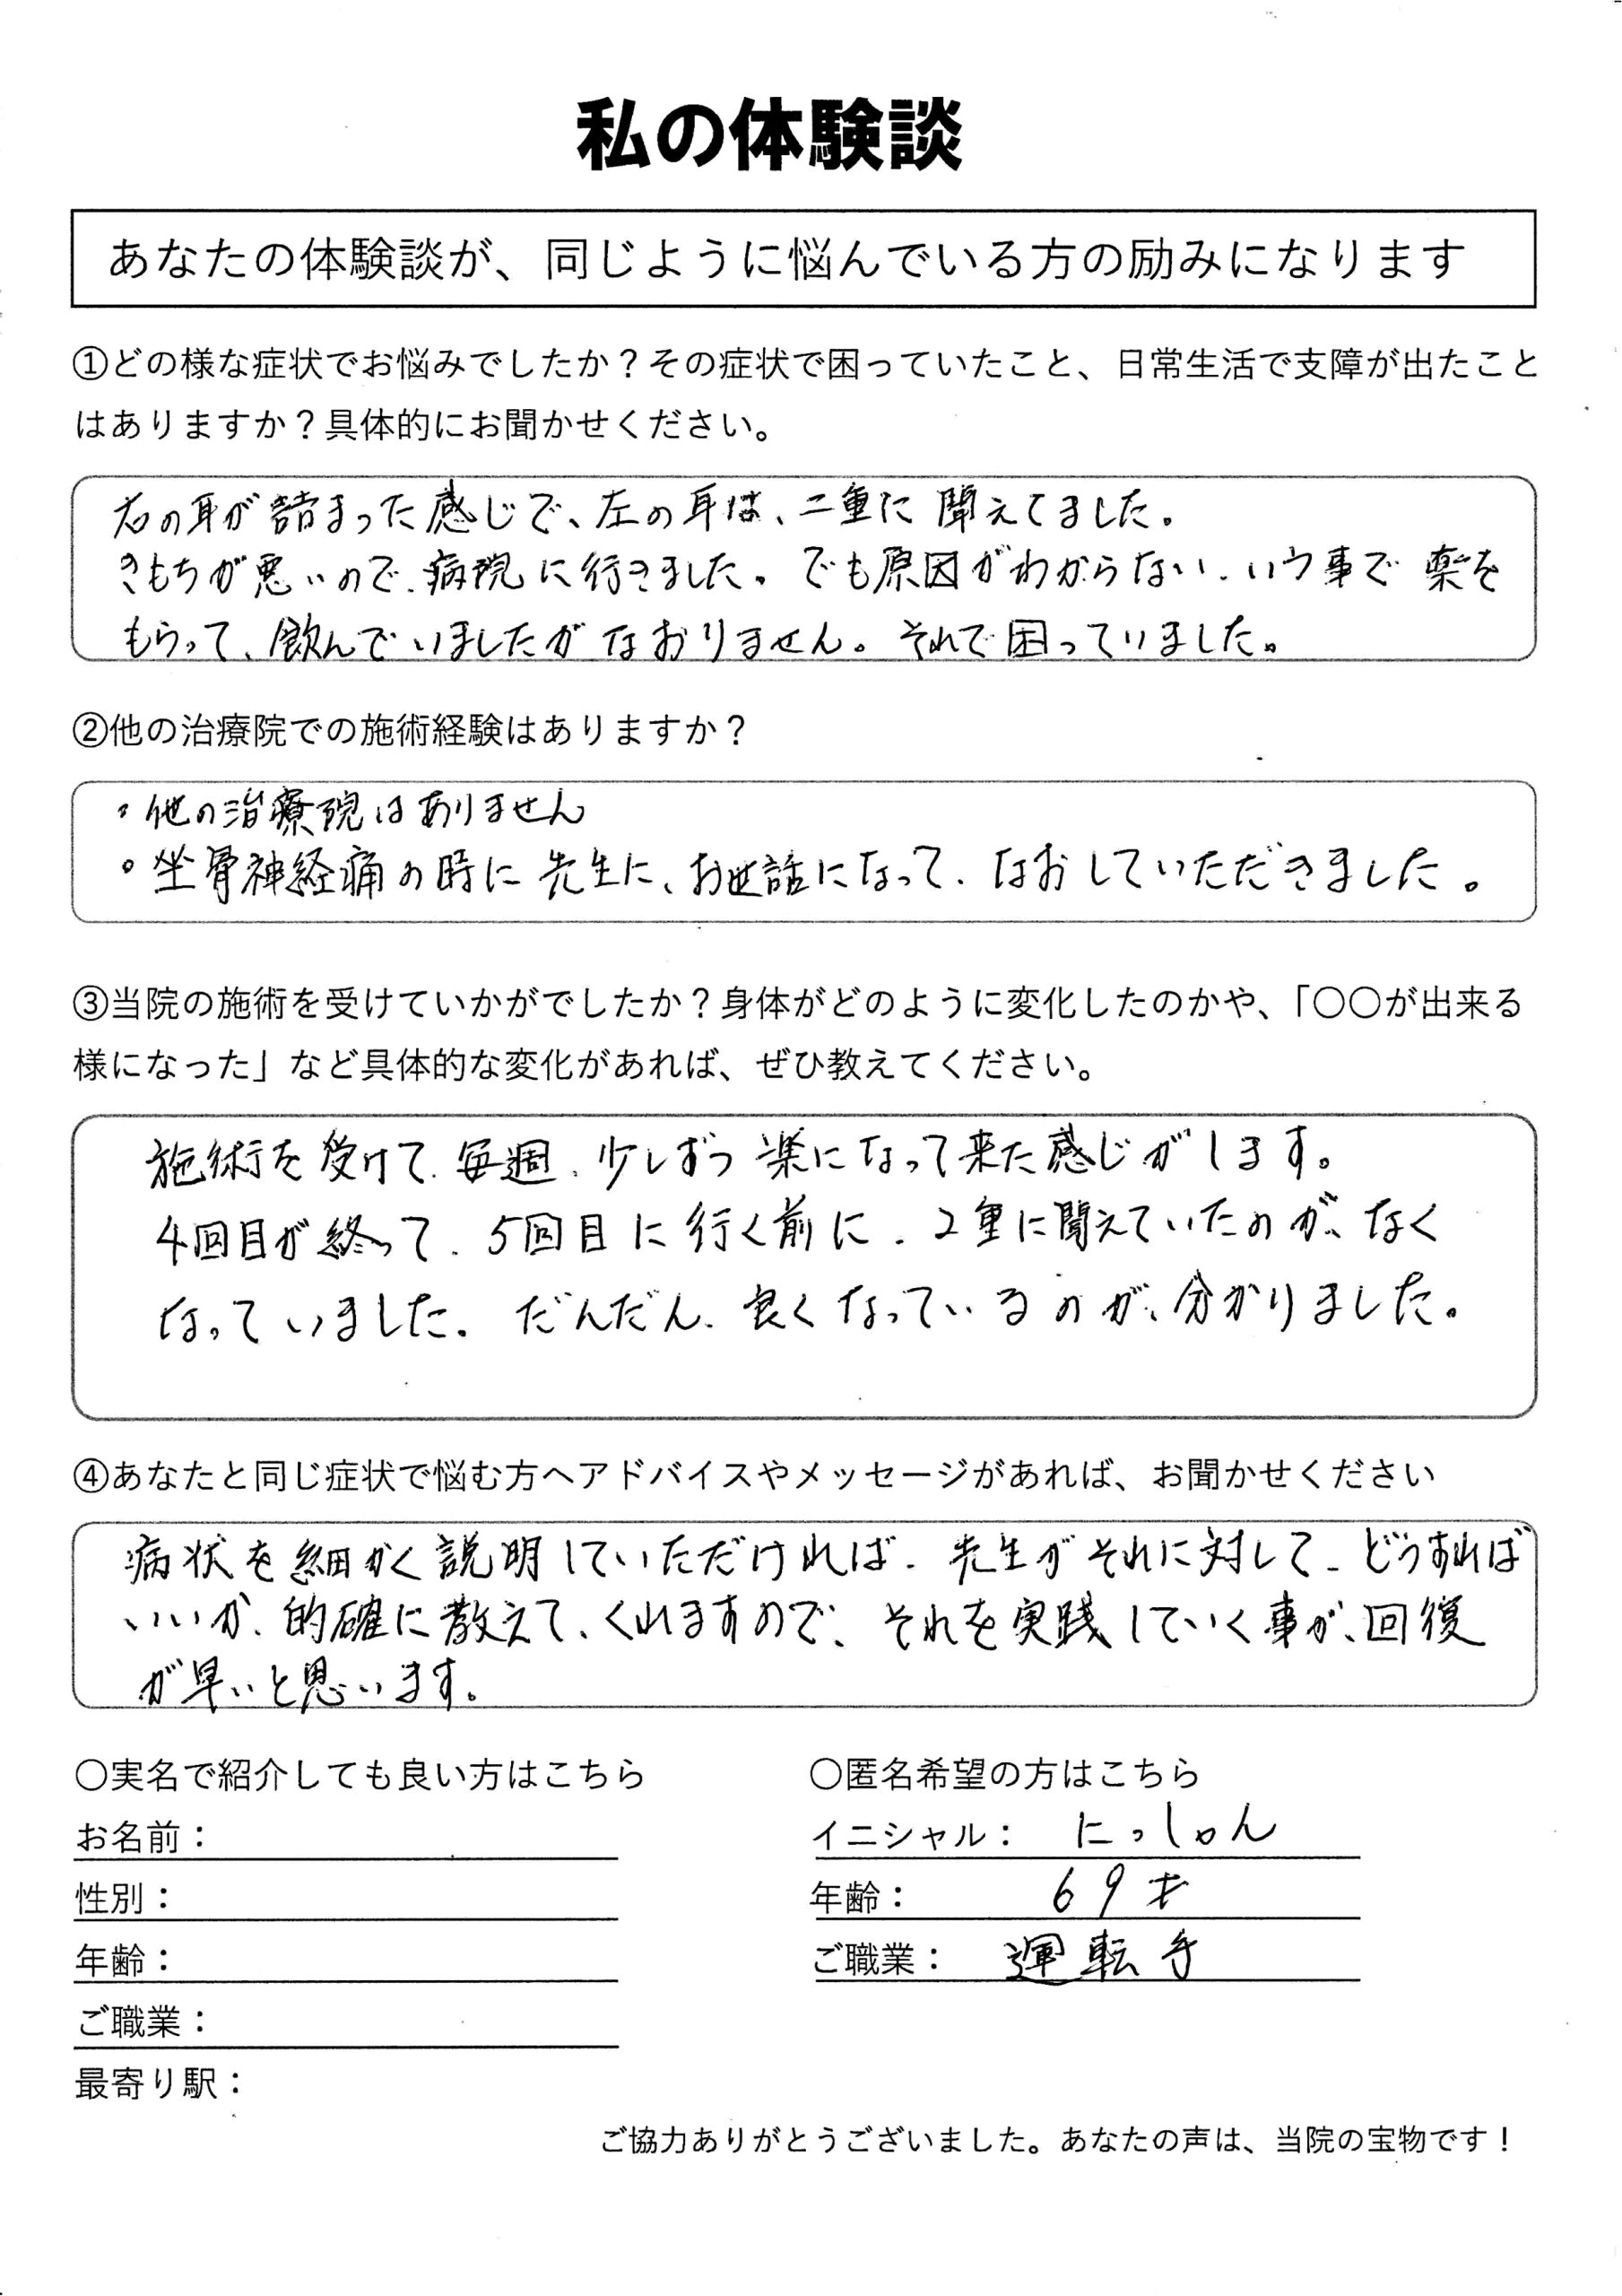 私の体験談
あなたの体験談が、同じように悩んでいる方の励みになります
①どの様な症状でお悩みでしたか？その症状で困っていたこと、日常生活で支障が出たこと
はありますか？具体的にお聞かせください。
右の耳が詰まった感じで、左の耳は、二重に聞えてました。
きもちが悪いので、病院に行きました。でも原因がわからない、いう事で薬を
もらって、飲んでいましたがなおりません。それで困っていました。
②他の治療院での施術経験はありますか？
・他の治療院はありません
・坐骨神経痛の時に先生に、お世話になって、なおしていただきました。
③当院の施術を受けていかがでしたか？身体がどのように変化したのかや、「〇〇が出来る
様になった」など具体的な変化があれば、ぜひ教えてください。
施術を受けて、毎週、少しずつ楽になって来た感じがします。
4回目が終って、5回目に行く前に、2重に聞えていたのが、なく
なっていました。だんだん、良くなっているのが、分かりました。
④あなたと同じ症状で悩む方へアドバイスやメッセージがあれば、お聞かせください
病状を細かく説明していただければ、先生がそれに対して、どうすれば
いいか、的確に教えて、くれますので、それを実践していく事が、回復
が早いと思います。
〇実名で紹介しても良い方はこちら
お名前：
性別：
年齢：
ご職業：
最寄り駅：
〇匿名希望の方はこちら
イニシャル： にっしゃん
年齢： 69才
ご職業： 運転手
ご協力ありがとうございました。あなたの声は、当院の宝物です！